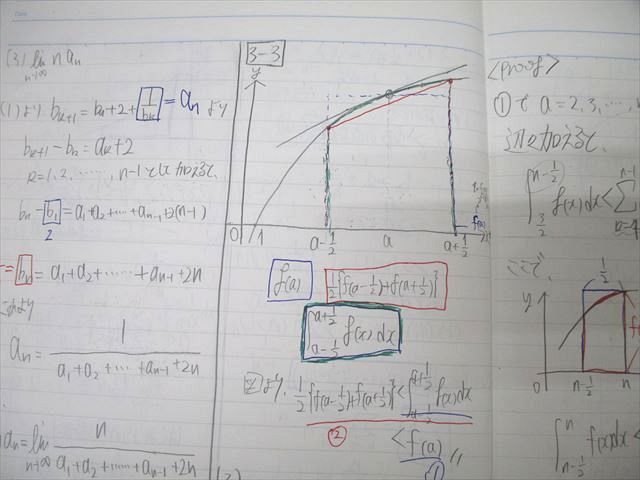 (3) lim n an
n→∞
(1)より bk+1 = bk+2+ 1/bk = an より
bk+1 - bk = ak+2
k=1, 2, ……, n-1 として加えると、
bn - b1 = a1+a2+…+an-1+2(n-1)
2
= bn = a1+a2+……+an-1+2n
an = 1/(a1+a2+……+an-1+2n)
an = lim n→∞ n/(a1+a2+……+an-1+2n)
3-3
y
0 1 a-1/2 a a+1/2
f(a)
f(a) 1/2{f(a-1/2)+f(a+1/2)}
∫a-1/2^a+1/2 f(x)dx
図より、 1/2{f(a-1/2)+f(a+1/2)} < ∫a-1/2^a+1/2 f(x)dx
② < f(a) 〃
①
<proof>
①で a=2, 3, ……,
辺々加えると、
∫3/2^n-1/2 f(x)dx < Σ
ここで、
1/2
y
0 n-1/2 n
∫n-1/2^n f(x)dx <